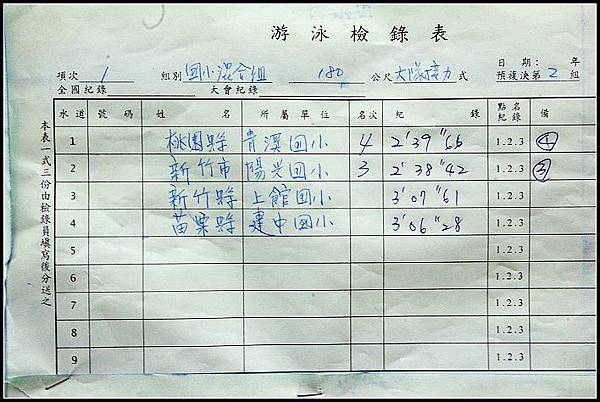 游泳檢錄表
日期: 年
項次 1 組別 国小混合組 180 公尺 大隊接力 式 預複決第 2 組
全國紀錄 大會紀錄
水道 號碼 姓名 所屬單位 名次 紀錄 點名紀錄 備
1 桃園縣 青溪国小 4 2'39"66 1.2.3 ④
2 新竹市 陽光国小 3 2'38"42 1.2.3 ③
3 新竹縣 上館国小 3'07"61 1.2.3
4 苗栗縣 建中国小 3'06"28 1.2.3
5 1.2.3
6 1.2.3
7 1.2.3
8 1.2.3
9 1.2.3
本表一式三份由檢錄員填寫後分送之